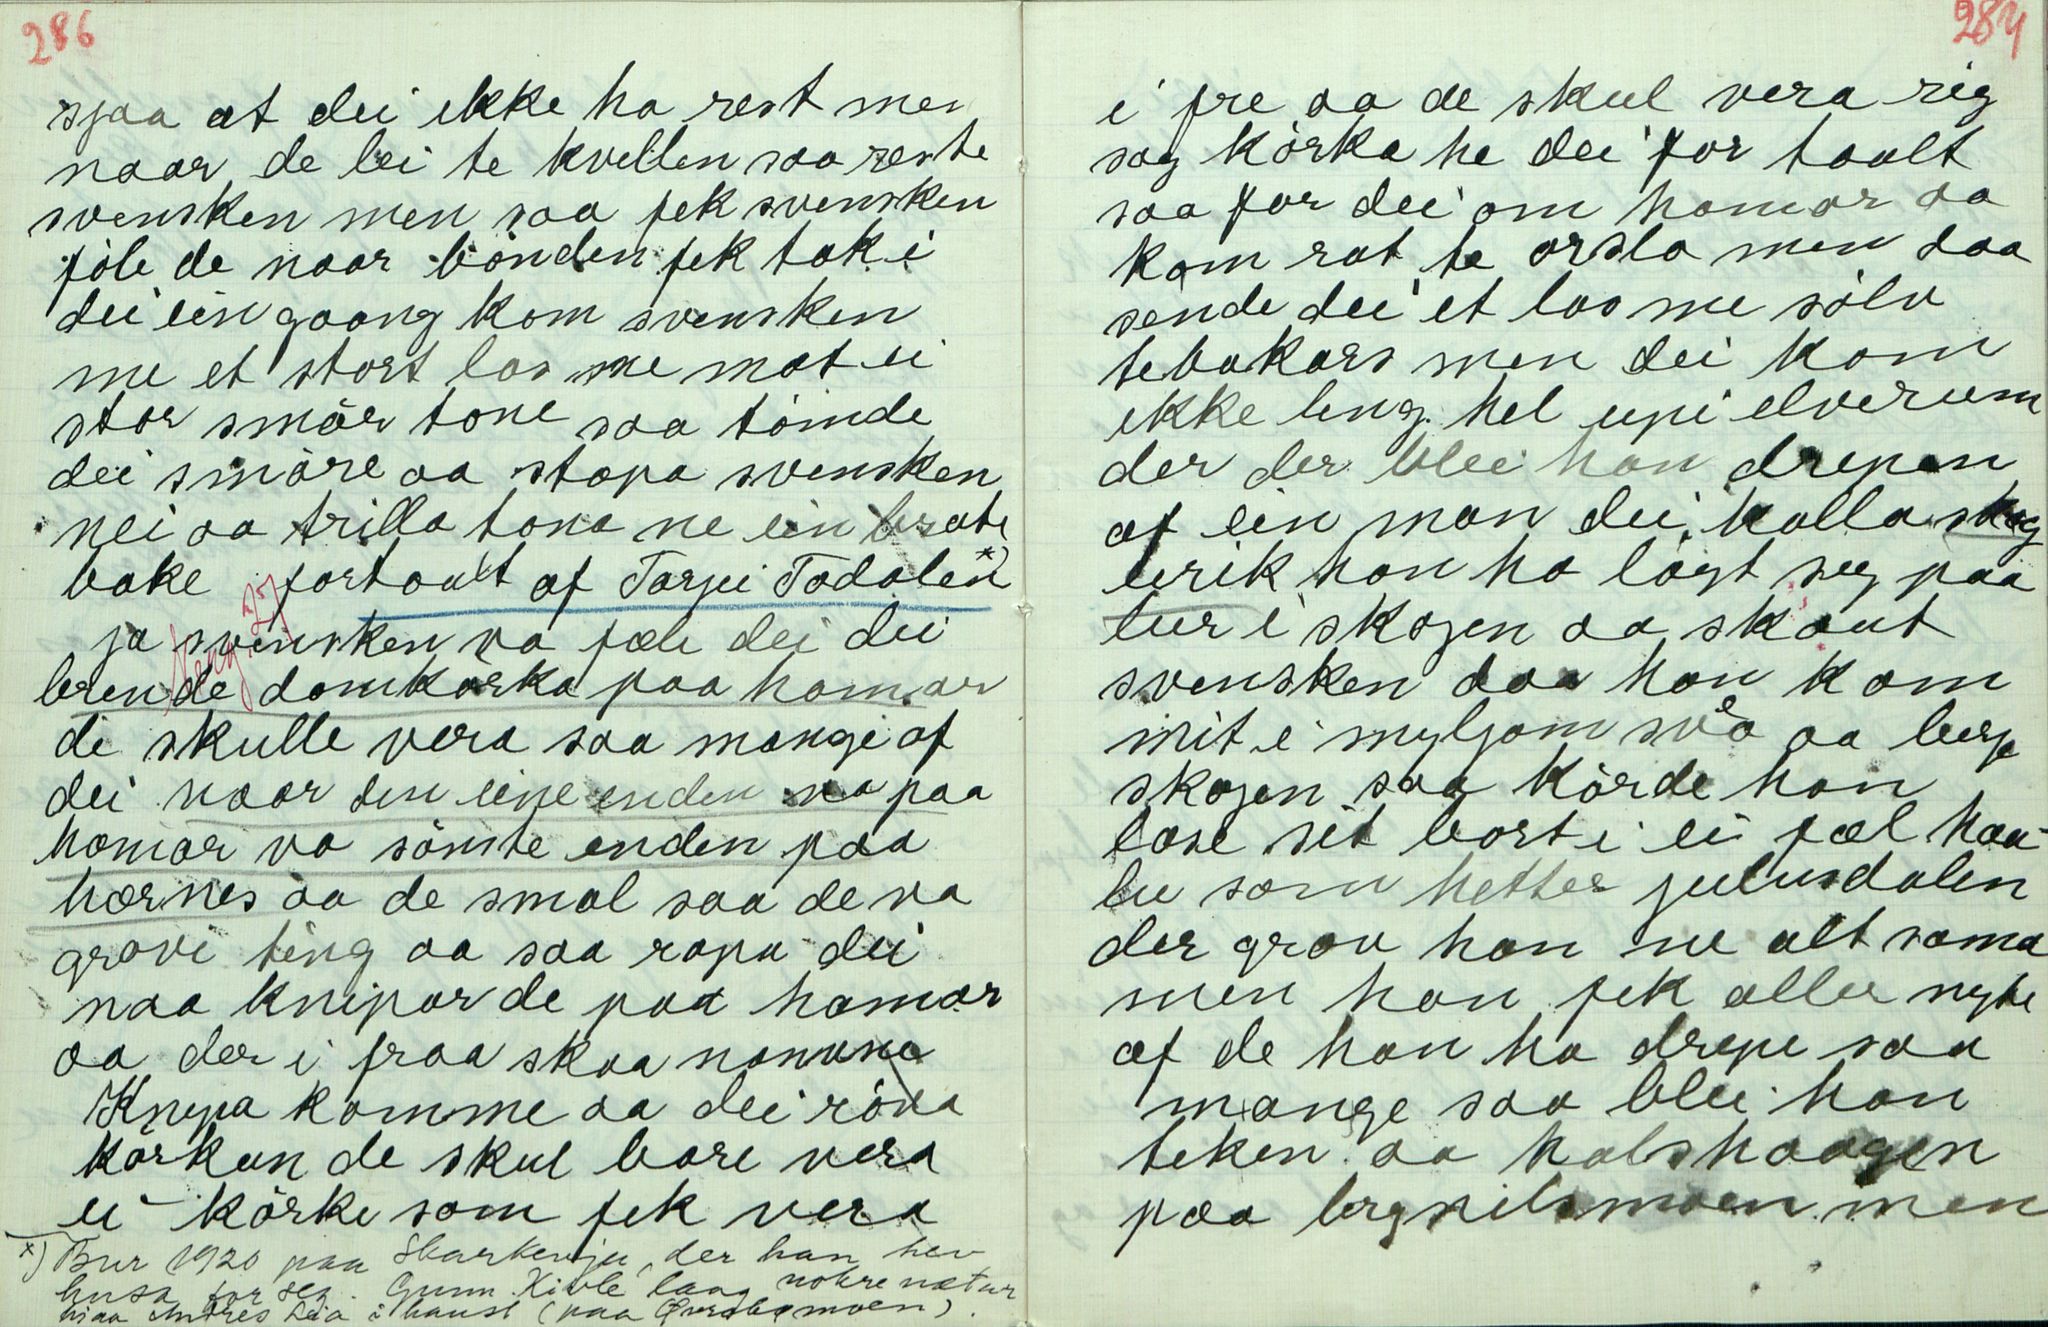 286
sjaa at dei ikke ha rest men
naar de lei te kvellen saa reste
svensken men saa fek svensken
føle de naar bønden fek tak i
dei ein gaang kom svensken
me et stort las me mat ei
stor smør tone saa tømde
dei smøre aa stapa svensken
nei aa trilla tona ne ein brate
bake fortoalt af Tarjei Tadalen *)
ja svensken va fæle dei dei
brende domkørka paa hamar
di skulle vera saa mange af
dei naar den eine enden va paa
hamar va sømste enden paa
hærnes aa de smal saa de va
grovi ting aa saa ropa dei
naa knipar de paa hamar
aa der i fraa skaa namne
Knepa komme aa dei røva
kørkun de skul bare vera
ei kørke som fek vera
*) Bur 1920 paa Skarkerije, der han hev
husa for seg. Gunn. Kivle laag nokre nætur
hjaa Andres Lia i haust (paa Øversbømoen).
284
i fre aa de skul vera rig
sag kørka he dei for taalt
saa for dei om hamar aa
kom rat te orslo men daa
sende dei et las me sølv
tebakars men dei kom
ikke leng. hel upi elverum
der der blei han drepen
af ein man dei kalla skog
eirik han ha lågt seg paa
lur i skogen aa skaut
svensken daa han kom
mit i myljom svåa aa berje
skogen saa kørde han
lase sit bort i ei fæl haa-
le som hetter julusdalen
der grov han ne alt sama
men han fek aller nyte
af de han ha drepe saa
mange saa blei han
teken aa halshaagen
paa bergnilsmoen men